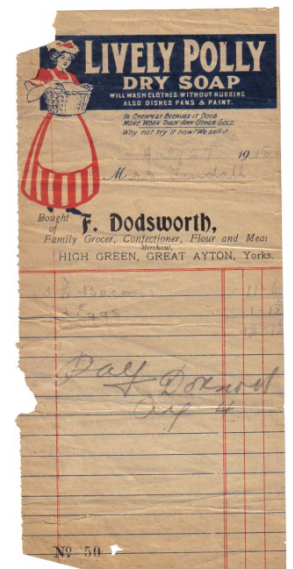 LIVELY POLLY
DRY SOAP
WILL WASH CLOTHES WITHOUT RUBBING
ALSO DISHES PANS & PAINT.
IS CHEAPEST BECAUSE IT DOES
MORE WORK THAN ANY OTHER SOLD.
Why not try it now? We sell it.
19
Mrs
Bought
of
F. Dodsworth,
Family Grocer, Confectioner, Flour and Meal
Merchant,
HIGH GREEN, GREAT AYTON, Yorks.
Eggs
Nº 50